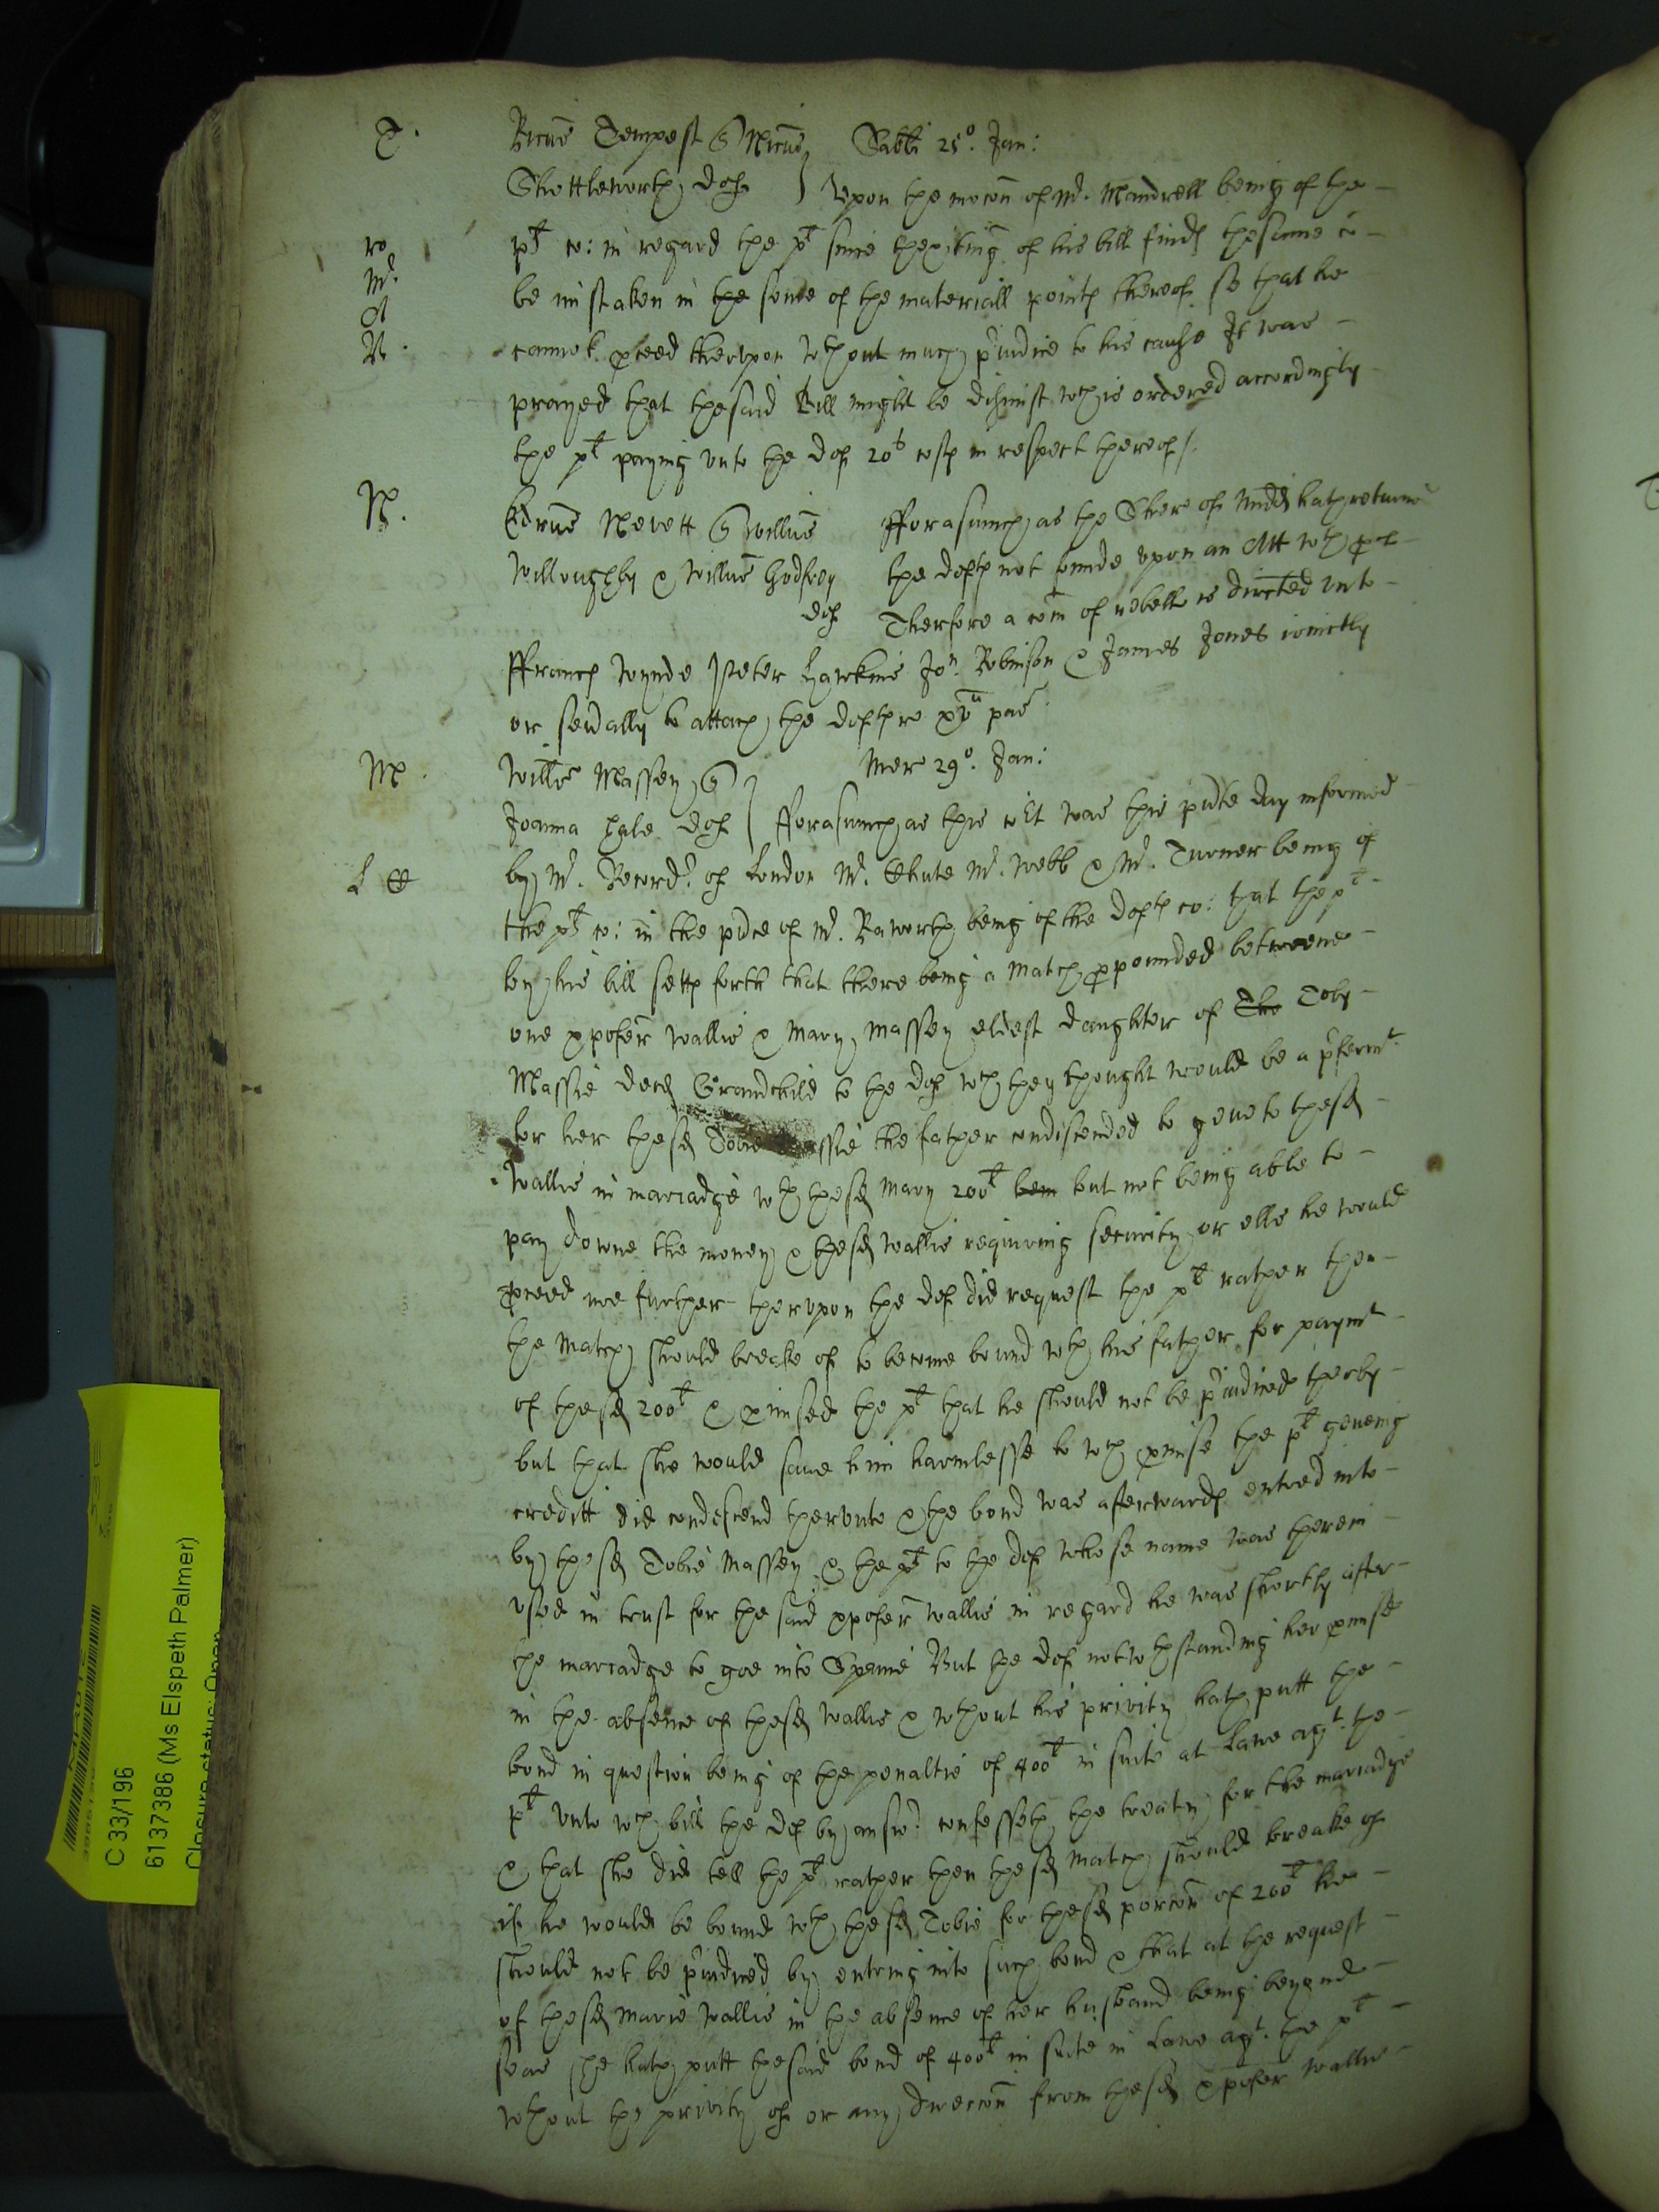 T. Ricus Tempest q Nicus Sabbi 25o. Jan:
Shuttleworth def } Upon the mocon of Mr. Mandrell being of the
plt co: in regard the plt since thexibiting of his bill finds thesame to
be mistaken in the some of the materiall points thereof so that he
cannot pceed therupon wthout much piudice to his cause It was
prayed that thesaid Bill might be dismist wch is ordered accordingly
the plt paying unto the def 20s costs in respect thereof /.
N. Edrus Nevett q Willus fforasmuch as the Shere of Midd hath returned
Willoughby & Willus Godfrey the defts not founde upon an Att wth pcl
def Therfore a com of rebell is directed unto
ffrancs Wynde Peter Hawkins Jon. Robinson & James Jones ioinctly
or seuerally to attach the defts re
M. Willus Massey q Mer 29o. Jan:
Joanna Hale def } fforasmuch as this Court was this pnte day informed
by Mr. Recordr. of London Mr. Chute Mr. Webb & Mr. Turner being of
the plts co: in the pnce of Mr. Raworth being of the defts co: that the plt
by his bill setts forth that there being a match ppounded betweene
one Xpofer Wallis & Mary Massey eldest daughter of The Toby
Massie decd Grandchild to the def wch they thought would be a pfermt
for her thesd Tobie Massie the father condiscended to geve to thesd
Wallis in mariadge wth thesd Mary 200l bein but not being able to
pay downe the money & thesd Wallis requiring security or ells he would
pceed noe further therupon the def did request the plt rather then
the match should breake of to become bound wth his father for paymt
of thesd 200l & pmised the plt that he should not be piudiced therby
but that she would save him harmlesse to wch pmise the plt geveing
creditt did condescend therunto & the bond was afterwards entred into
by thesd Tobie Massey & the plt to the def whose name was therein
used in trust for the said Xpofer Wallis in regard he was shortly after
the mariadge to goe into Spaine But the def notwthstanding her pmise
in the absence of thesd Wallis & wthout his privity hath putt the
bond in question being of the penaltie of 400l in suite at Lawe agt. the
plt Unto wch bill the def by answr confesseth the treaty for the mariadge
& that she did tell the plt rather then thesd match should breake of
if he would be bound wth thesd Tobie for thesd porcon of 200l he
should not be piudiced by entring into such bond & that at the request
of thesd Marie Wallis in the absence of her husband being beyond
seas she hath putt thesaid bond of 400l in suite in Lawe agt. the plt
wthout the privity of or any direccon from thesd Xpofer Wallis
C 33/196
6137386 (Ms Elspeth Palmer)
Closure status: Open